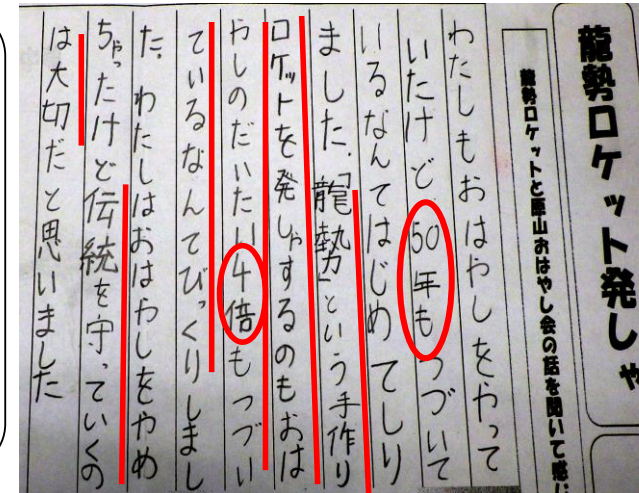 龍勢ロケット発しゃ
龍勢ロケットと原山おはやし会の話を聞いて感じ
わたしもおはやしをやって
いたけど50年もつづいて
いるなんてはじめてしり
ました。「龍勢」という手作り
ロケットを発しゃするのもおは
やしのだいたい4倍もつづい
ているなんてびっくりしまし
た。わたしはおはやしをやめ
ちゃったけど伝統を守っていくの
は大切だと思いました